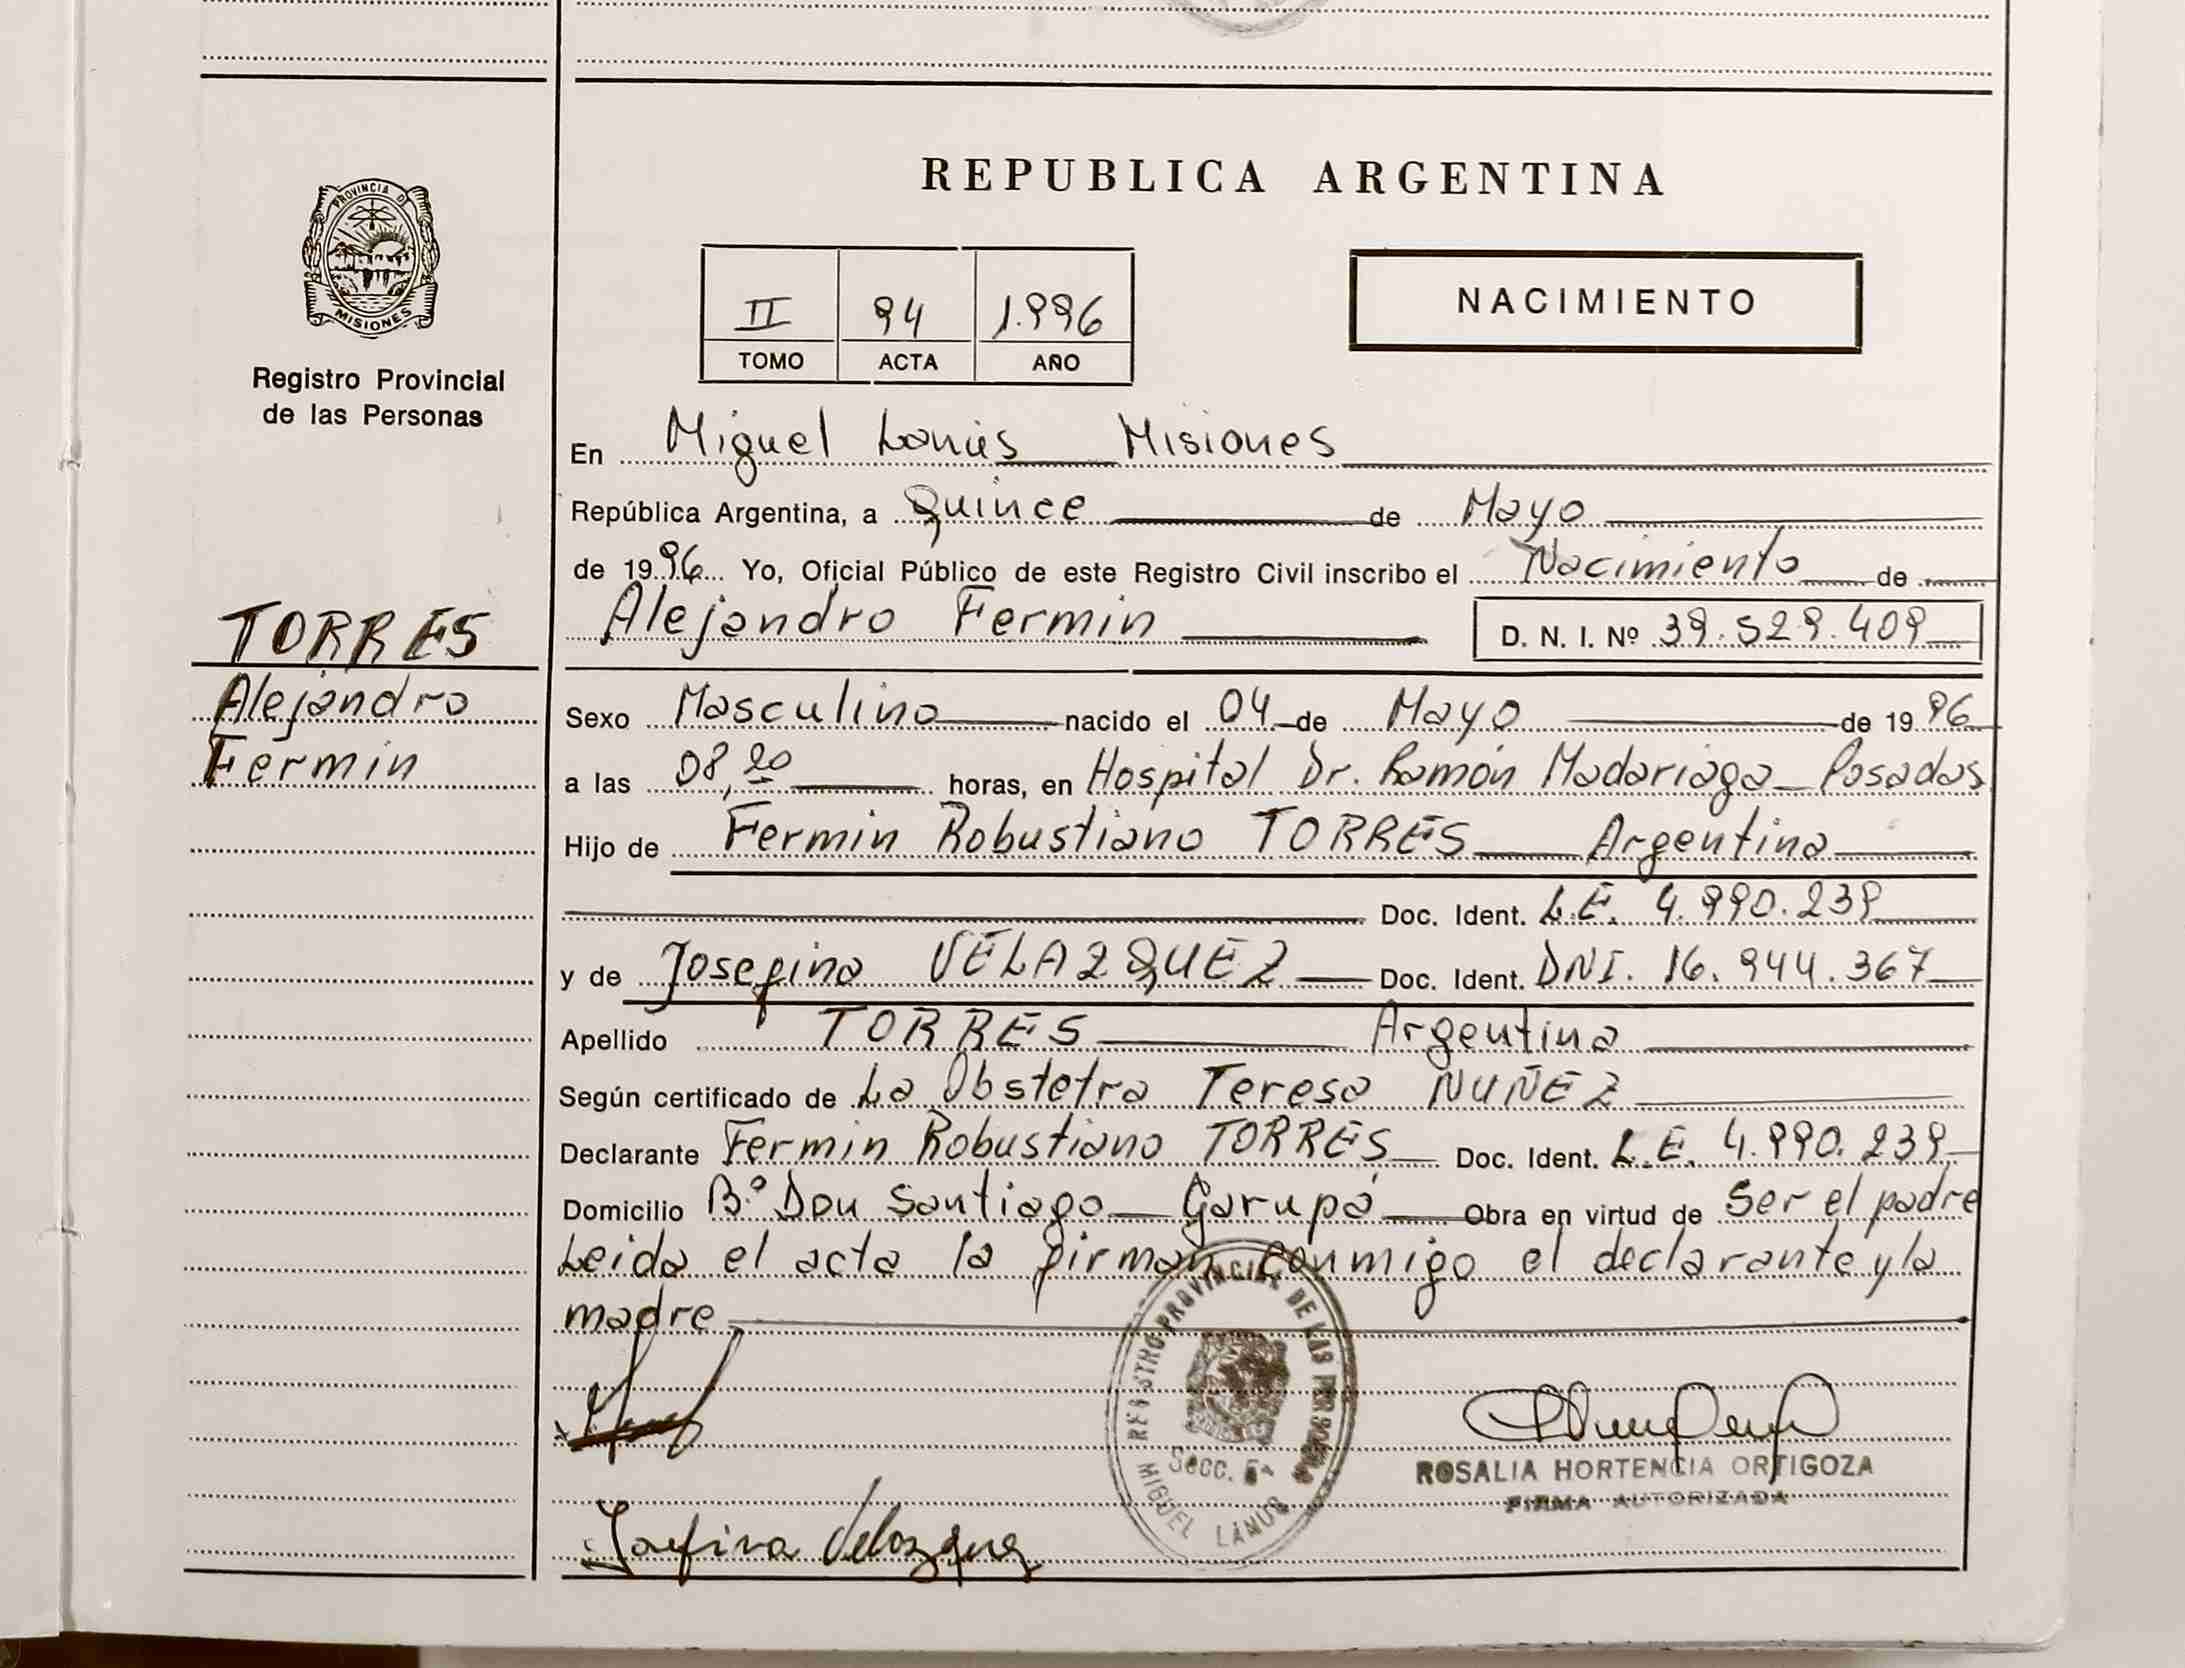 REPUBLICA ARGENTINA
PROVINCIA D
MISIONES
Registro Provincial
de las Personas
II 94 1.996
TOMO ACTA AÑO
NACIMIENTO
En Miguel Lanús Misiones
República Argentina, a Quince de Mayo
de 1996 Yo, Oficial Público de este Registro Civil inscribo el Nacimiento de
Alejandro Fermin D. N. I. Nº 39.529.409
TORRES
Alejandro
Fermin
Sexo Masculino nacido el 04 de Mayo de 1996
a las 08,20 horas, en Hospital Dr. Ramón Madariaga Posadas
Hijo de Fermin Robustiano TORRES Argentina
Doc. Ident. L.E. 4.990.239
y de Josefina VELAZQUEZ Doc. Ident. DNI. 16.944.367
Apellido TORRES Argentina
Según certificado de La Obstetra Teresa NUÑEZ
Declarante Fermin Robustiano TORRES Doc. Ident. L.E. 4.990.239
Domicilio B.º Don Santiago Garupá Obra en virtud de Ser el padre
Leida el acta la firman conmigo el declarante y la
madre
REGISTRO PROVINCIAL DE LAS PERSONAS
Secc. 5ª
MIGUEL LANUS
ROSALIA HORTENCIA ORTIGOZA
FIRMA AUTORIZADA
Josefina Velazquez